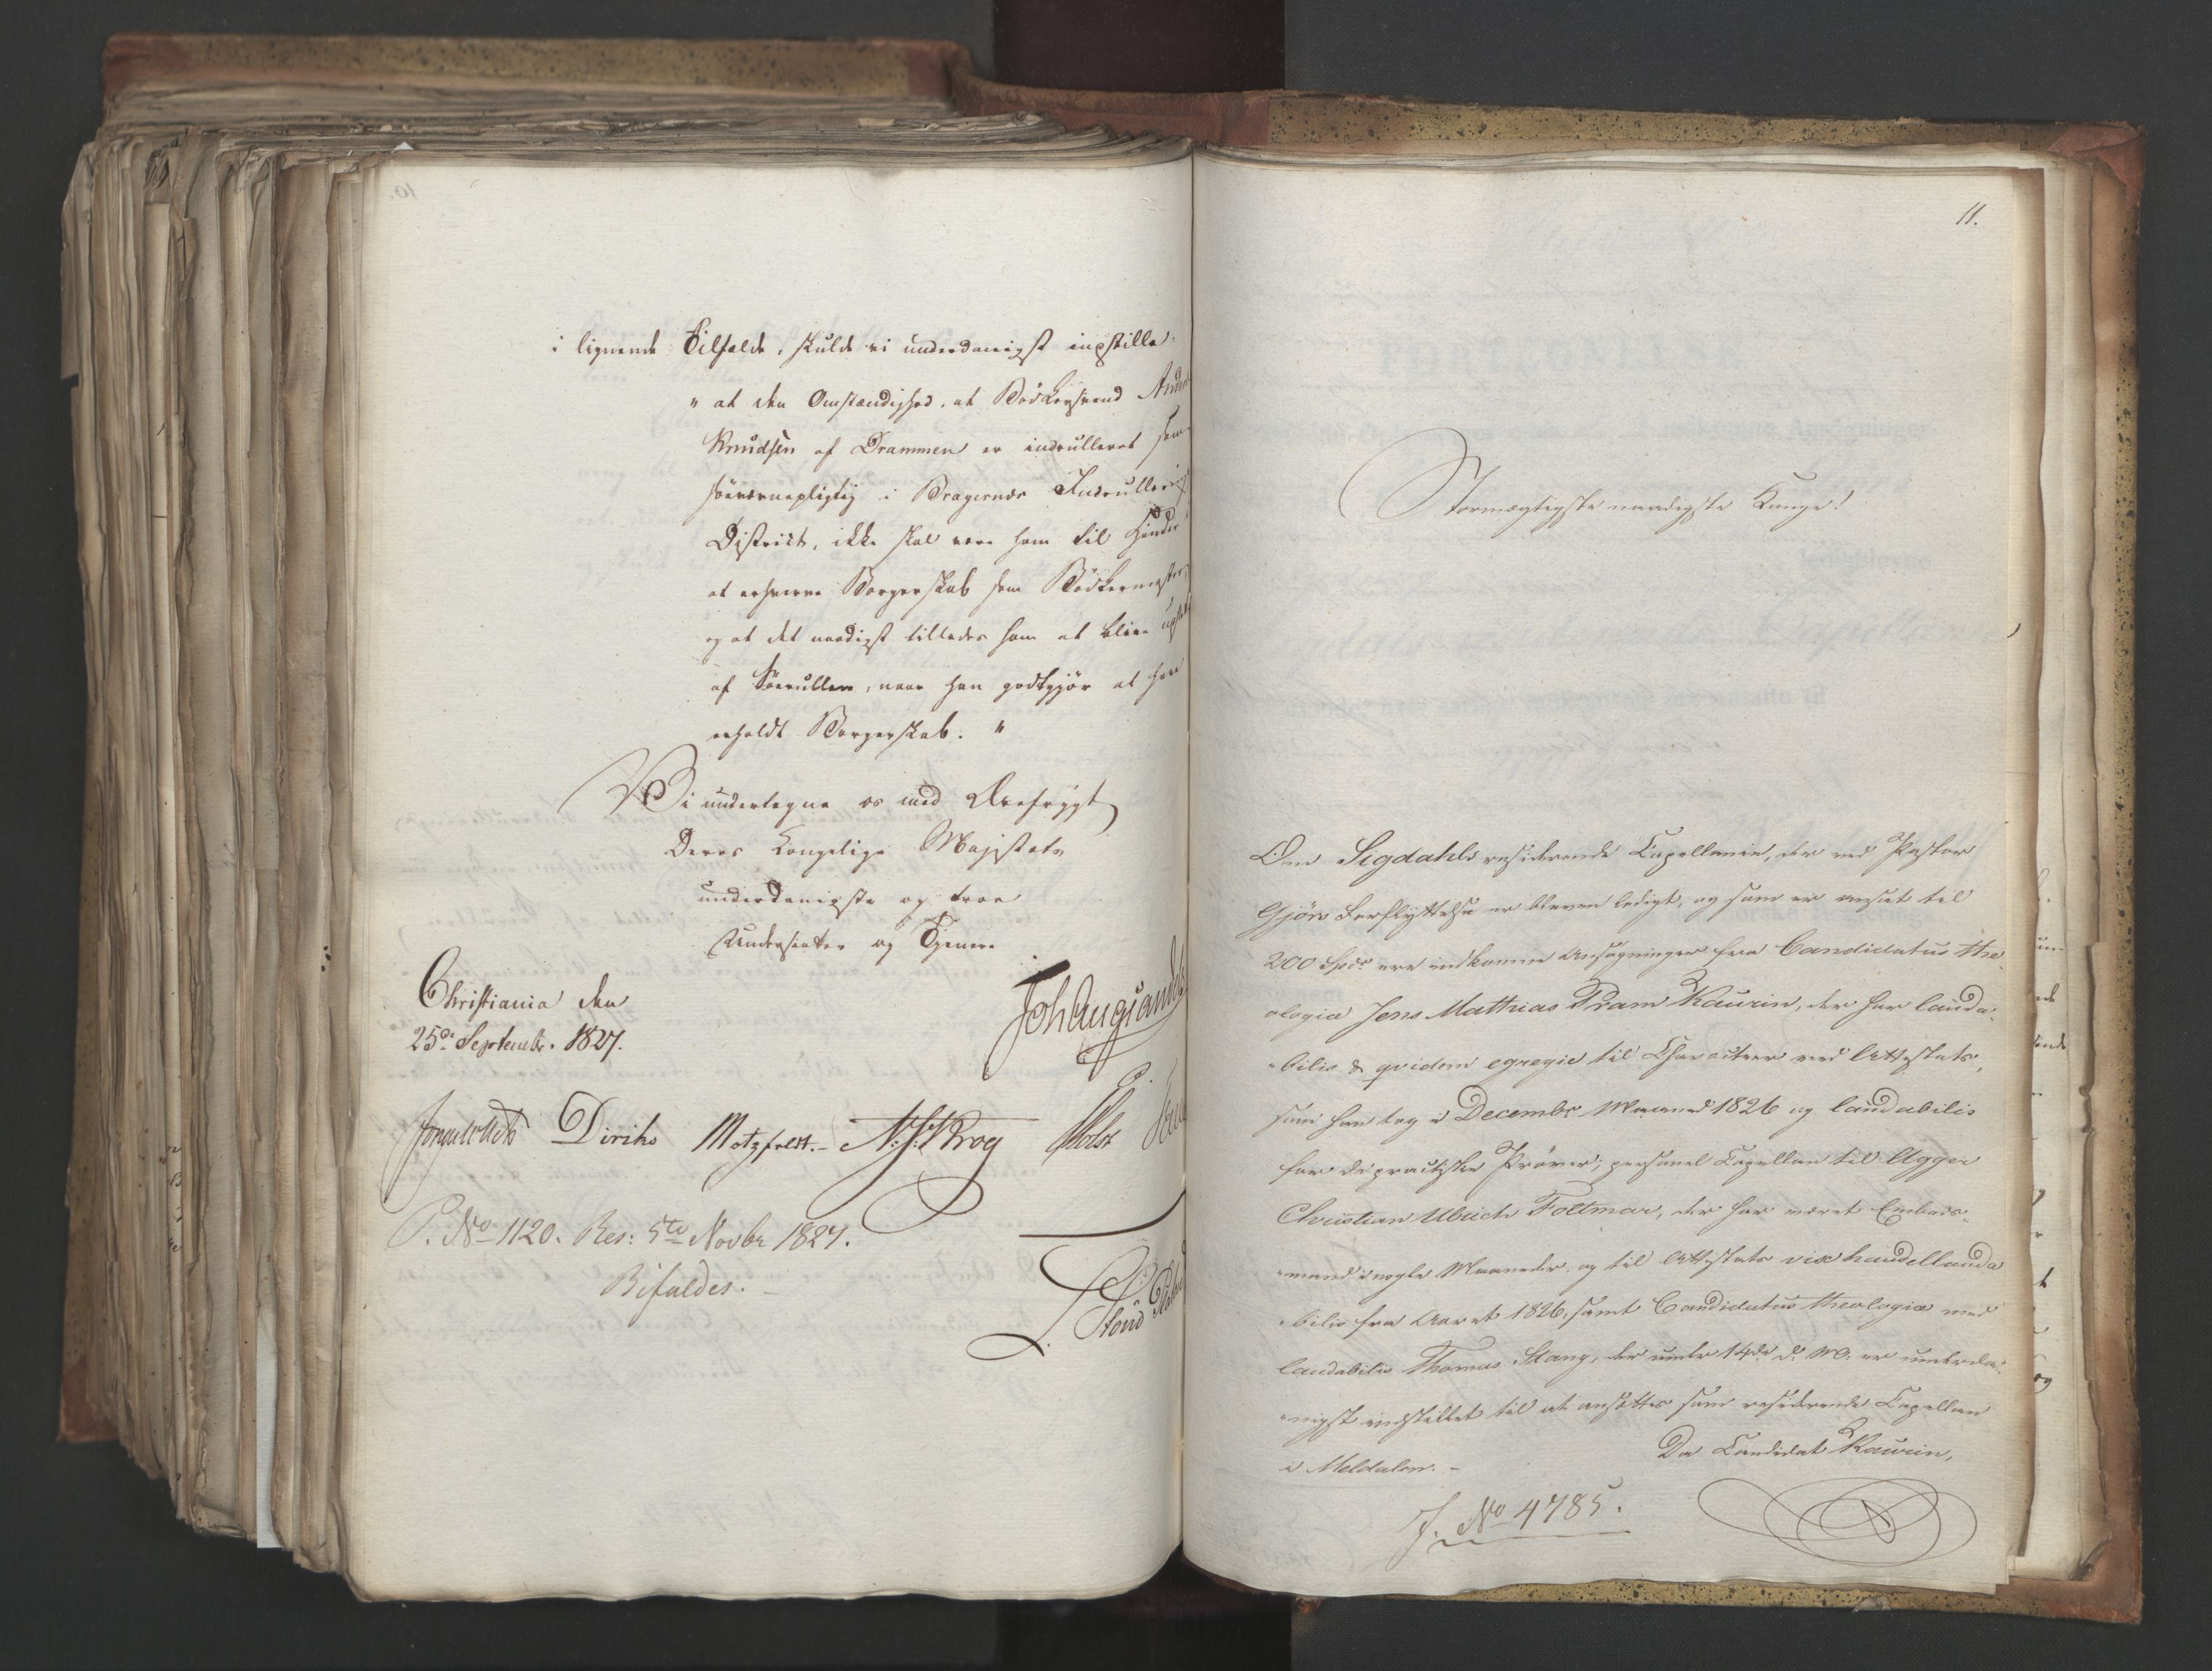 i lignende Tilfælde, skulde vi underdanigst indstille:
" at den Omstændighed, at Bödkersvend
Knudsen af Drammen er indrulleret som
söeværnepligtig i Bragernæs Indrullerings
District, ikke skal være ham til Hinder
at erhverve Borgerskab som Bödkermester,
og at det naadigst tillades ham at blive
af Söerullen, naar han godtgjör at have
erholdt Borgerskab. "
Vi undertegne os med Ærefrygt
Deres Kongelige Majestæts
underdanigste og troe
Undersaatter og Tjenere
Christiania den
25de Septembr. 1827.
Joh Aug Sandels
Jonas Collett Diriks Motzfeldt.- N. J. Krog P. Holst
P. No 1120. Res: 5te Novbr 1827.
Bifaldes. -
11.
Stormægtigste naadigste Konge!
Om Sigdahls residerende Capellanie, der ved Pastor
Gjörs Forflyttelse er bleven ledigt, og som er ansat til
200 Spdr ere indkomne Ansögninger fra Candidatus the-
ologiæ Jens Mathias Pram Kaurin, der har lauda-
"bilis & qvidem egregie til Characteer ved Attestats,
som han tog i Decembr Maaned 1826 og laudabilis
for de practiske Pröver; personel Capellan til Agger
Christian Ulrich Foltmar, der har været Embeds-
"mand i nogle Maaneder og til Attestats vix haud illauda
"bilis fra Aaret 1826, samt Candidatus theologiæ med
laudabilis Thomas Stang, der under 14de d. M. er underda-
"nigst indstillet til at ansættes som residerende Capellan
i Meldalen. -
Da Candidat Kaurin,
J. No 4785.